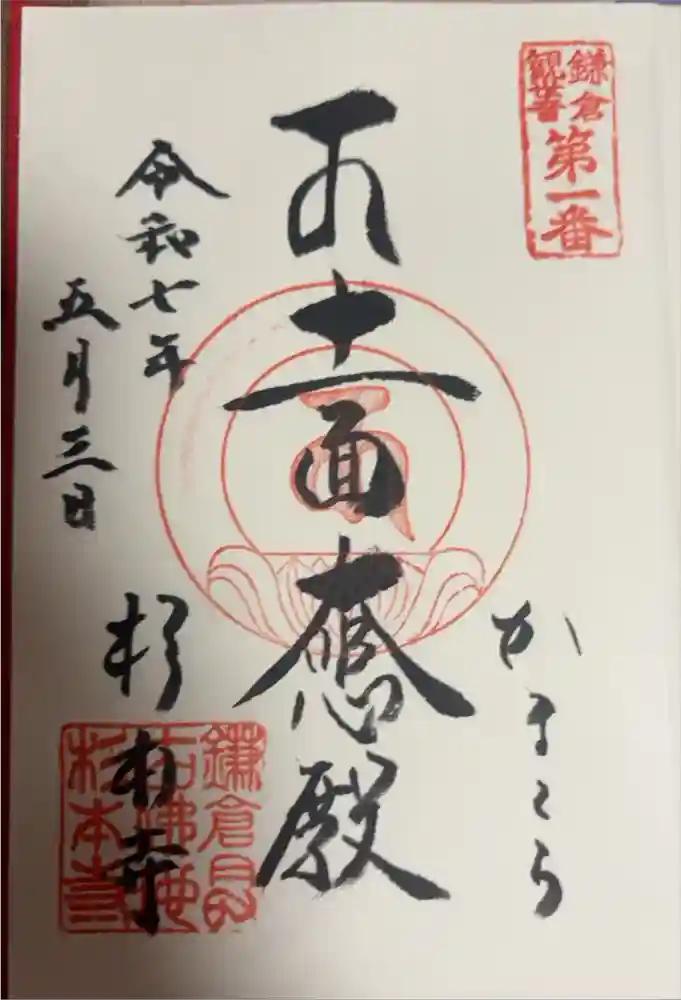 鎌倉
観音
第一番
かまくら
十一面大悲殿
令和七年
五月三日
杉本寺
杉本寺